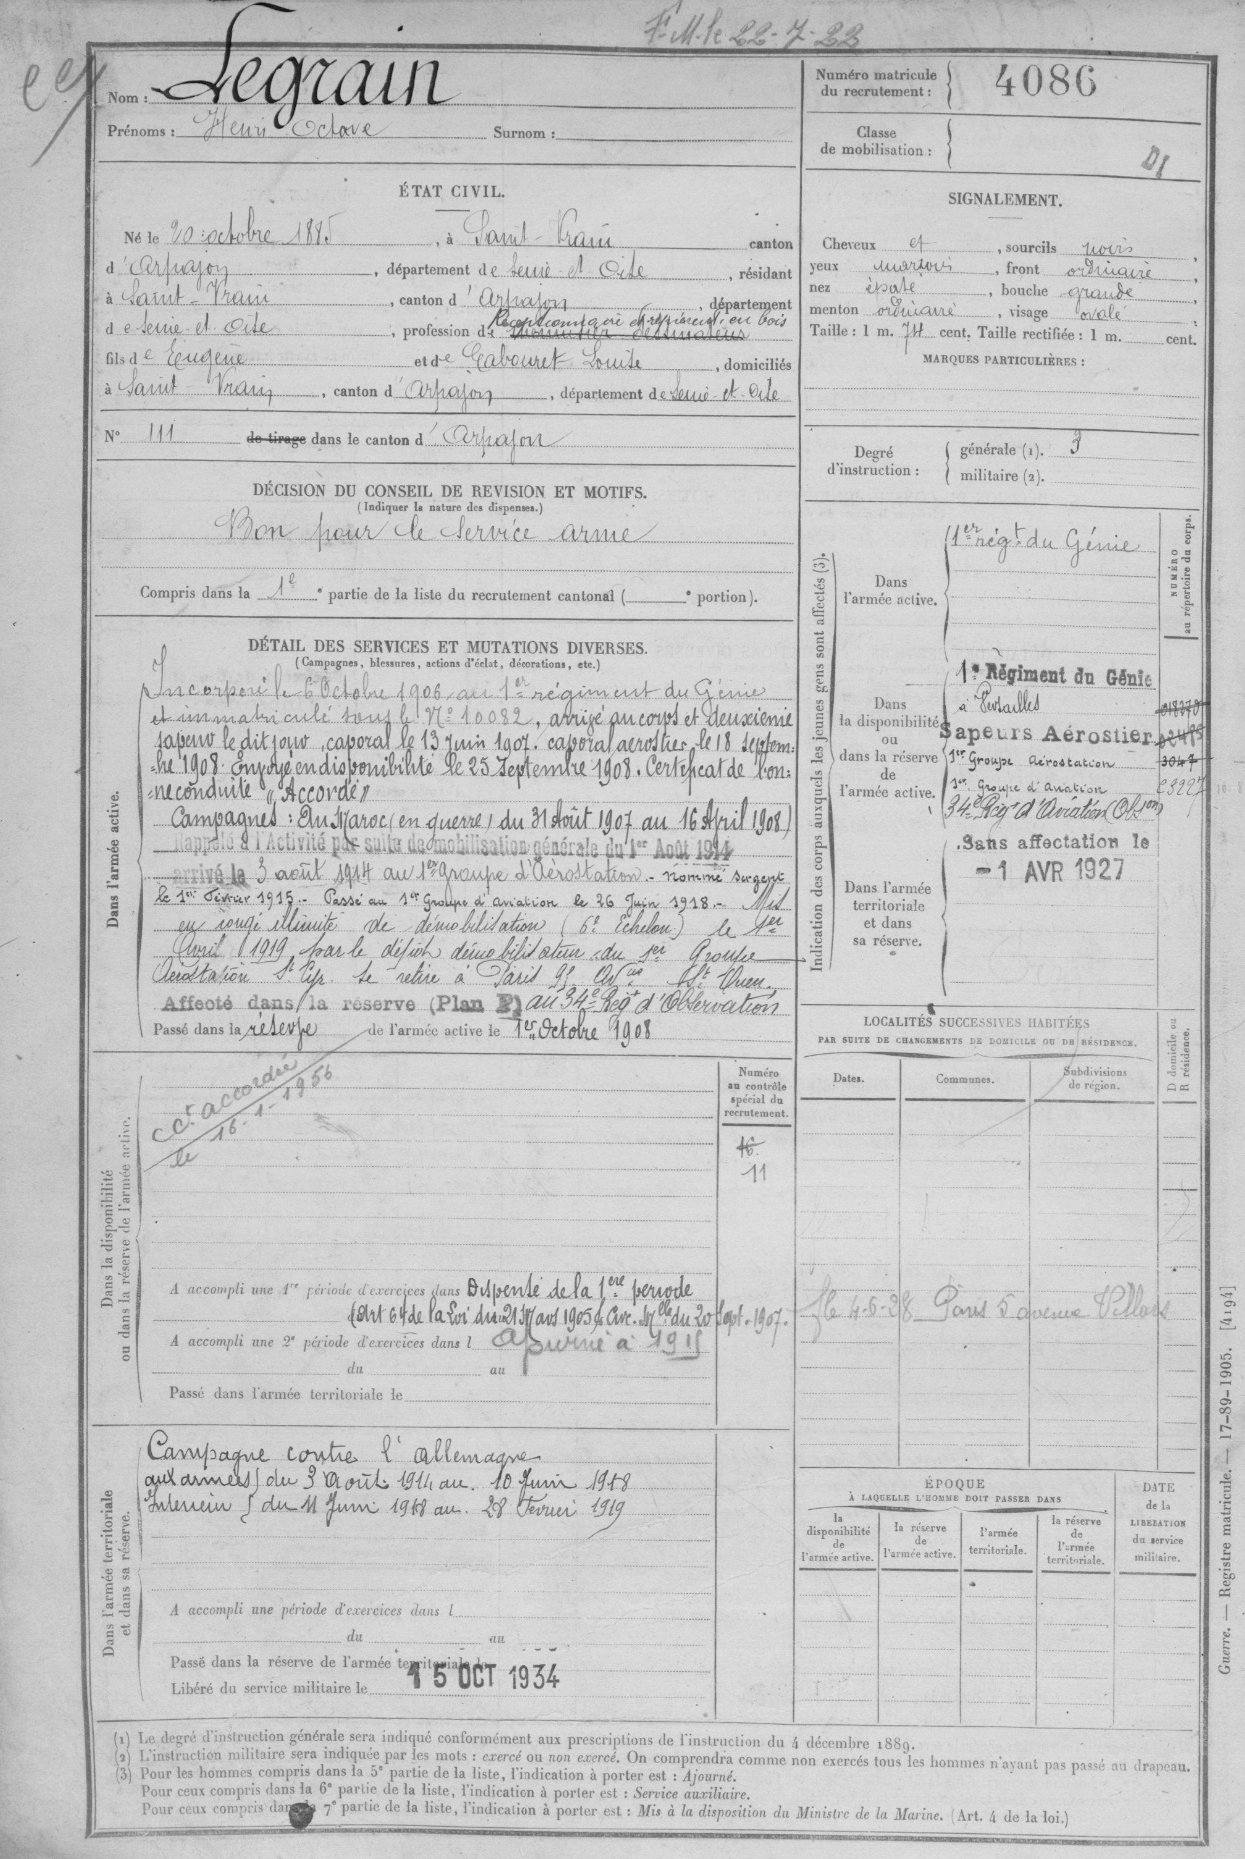 F. M. le 22-7-22
Nom : Legrain
Prénoms : Henri Octave Surnom :
ÉTAT CIVIL.
Né le 20 octobre 1885, à Saint-Vrain canton
d'Arpajon, département de Seine-et-Oise, résidant
à Saint-Vrain, canton d'Arpajon, département
de Seine-et-Oise, profession de
en bois
fils de Eugène et de Cabouret Louise, domiciliés
à Saint-Vrain, canton d'Arpajon, département de Seine-et-Oise
N° 111 de tirage dans le canton d'Arpajon
DÉCISION DU CONSEIL DE REVISION ET MOTIFS.
(Indiquer la nature des dispenses.)
Bon pour le service armé
Compris dans la 1e partie de la liste du recrutement cantonal ( e portion).
DÉTAIL DES SERVICES ET MUTATIONS DIVERSES.
(Campagnes, blessures, actions d'éclat, décorations, etc.)
Dans l'armée active.
Incorporé le 6 Octobre 1906 au 1er régiment du Génie
et immatriculé sous le No 10082, arrivé au corps et deuxième
sapeur le dit jour, caporal le 13 Juin 1907. caporal aerostier le 18 Septem-
-bre 1908. Envoyé en disponibilité le 25 Septembre 1908. Certificat de bon-
-ne conduite "Accordé"
Campagnes : Au Maroc (en guerre) du 31 Août 1907 au 16 Avril 1908)
Rappelé à l'Activité par suite de mobilisation générale du 1er Août 1914
arrivé le 3 août 1914 au 1er Groupe d'Aérostation. - nommé sergent
le 1er Février 1915. - Passé au 1er Groupe d'aviation le 26 Juin 1918. - Mis
en congé illimité de démobilisation (6e Echelon) le 1er
Avril 1919 par le dépôt démobilisateur du 1er Groupe
Aérostation St Cyr. Se retire à Paris 95 Avnue St Ouen.
Affecté dans la réserve (Plan P) au 34e Regt d'Observation
Passé dans la réserve de l'armée active le 1er Octobre 1908
Dans la disponibilité
ou dans la réserve de l'armée active.
Numéro
au contrôle
spécial du
recrutement.
16.
11
cct accordée
le 16-1-1956
A accompli une 1re période d'exercices dans Dispensé de la 1ère période
(Art 64 de la Loi du 21 Mars 1905 & Circ. Mlle du 20 Sept. 1907.
A accompli une 2e période d'exercices dans l ajourné à 1915
du au
Passé dans l'armée territoriale le
Dans l'armée territoriale
et dans sa réserve.
Campagne contre l'allemagne
aux armées} du 3 Août 1914 au 10 Juin 1918
Interieur } du 11 Juin 1918 au 28 Fevrier 1919
A accompli une période d'exercices dans l
du au
Passé dans la réserve de l'armée territoriale le
Libéré du service militaire le 15 OCT 1934
Numéro matricule
du recrutement : 4086
Classe
de mobilisation :
D1
SIGNALEMENT.
Cheveux et, sourcils noirs,
yeux marrons, front ordinaire,
nez épaté, bouche grande,
menton ordinaire, visage ovale.
Taille : 1 m. 74 cent. Taille rectifiée : 1 m. cent.
MARQUES PARTICULIÈRES :
Degré
d'instruction :
générale (1). 3
militaire (2).
Indication des corps auxquels les jeunes gens sont affectés (3).
NUMÉRO
au répertoire du corps.
Dans
l'armée active.
1er régt du Génie
Dans
la disponibilité
ou
dans la réserve
de
l'armée active.
1er Régiment du Génie
à Versailles
Sapeurs Aérostier
1er Groupe Aérostation 3047
1er Groupe d'Aviation
34e Régt d'Aviation (Obson)
Dans l'armée
territoriale
et dans
sa réserve.
Sans affectation le
-1 AVR 1927
LOCALITÉS SUCCESSIVES HABITÉES
PAR SUITE DE CHANGEMENTS DE DOMICILE OU DE RÉSIDENCE.
Dates. Communes. Subdivisions
de région.
D domicile ou
R résidence.
le 4-6-28 Paris 5 avenue Villars
ÉPOQUE
À LAQUELLE L'HOMME DOIT PASSER DANS
la
disponibilité
de
l'armée active.
la réserve
de
l'armée active.
l'armée
territoriale.
la réserve
de
l'armée
territoriale.
DATE
de la
LIBÉRATION
du service
militaire.
(1) Le degré d'instruction générale sera indiqué conformément aux prescriptions de l'instruction du 4 décembre 1889.
(2) L'instruction militaire sera indiquée par les mots : exercé ou non exercé. On comprendra comme non exercés tous les hommes n'ayant pas passé au drapeau.
(3) Pour les hommes compris dans la 5e partie de la liste, l'indication à porter est : Ajourné.
Pour ceux compris dans la 6e partie de la liste, l'indication à porter est : Service auxiliaire.
Pour ceux compris dans la 7e partie de la liste, l'indication à porter est : Mis à la disposition du Ministre de la Marine. (Art. 4 de la loi.)
Guerre. — Registre matricule. — 17-89-1905. [4194]